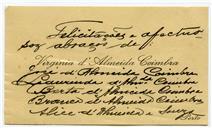 Felicitações e afectuo
sos abraços de
Virginia d'Almeida Coimbra
José d'Almeida Coimbra
Laurinda d'Almeida Coimbra
Berta d'Almeida Coimbra
Branca d'Almeida Coimbra
Alice d'Almeida e Souza
Porto